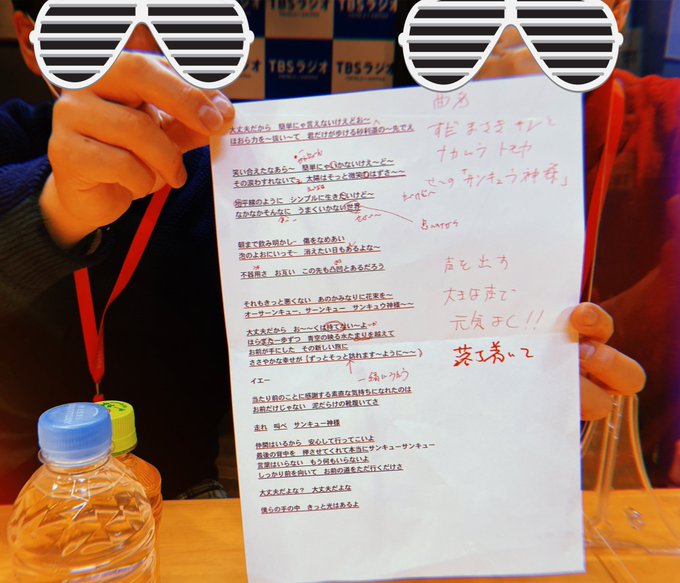 TBSラジオ
TBSラジオ
大丈夫だから 簡単にゃ言えないけえどお〜
ほおら力を〜抜い〜て 君だけが歩ける砂利道の〜先でえ
笑い合えたなあら〜 簡単にゃいかないけえ〜ど〜
その涙わすれないでえ 太陽はそっと微笑むはずさ〜〜
地平線のように シンプルに生きたいけど〜
なかなかそんなに うまくいかない世界
朝まで飲み明かし 傷をなめあい
次のよおにいっそ 消えたい日もあるよな〜
不器用さ お互い この先も凸凹とあるだろう
それもきっと悪くない あのかみなりに花束を〜
オーサーンキュー、サーンキュー サンキュウ神様〜〜
大丈夫だから お〜〜くは待てない〜よ〜
ほらまた一歩ずつ 青空の映る水たまりを越えて
お前が手にした その新しい旅に
ささやかな幸せが(ずっとそっと訪れます〜ように〜〜)
イエー
当たり前のことに感謝する素直な気持ちになれたのは
お前だけじゃない 泥だらけの靴履いてさ
走れ 叫べ サンキュー神様
仲間はいるから 安心して行ってこいよ
最後の背中を 押させてくれて本当にサンキューサンキュー
言葉はいらない もう何もいらないよ
しっかり前を向いて お前の道をただ行くだけさ
大丈夫だよな? 大丈夫だよな
僕らの手の中 きっと光はあるよ
曲名
すだまさきサンと
ナカムラトモヤ
せ〜の「サンキュウ神様」
声を出す
大きな声で
元気よく!!
落ち着いて